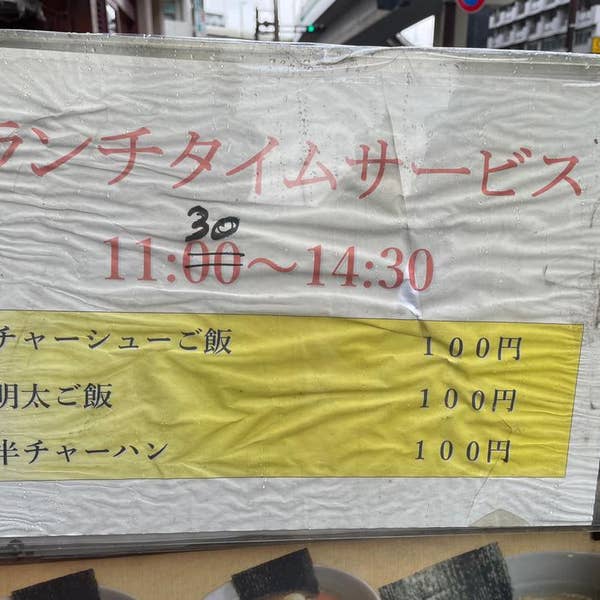 ランチタイムサービス
30
11:00〜14:30
チャーシューご飯 100円
明太ご飯 100円
半チャーハン 100円